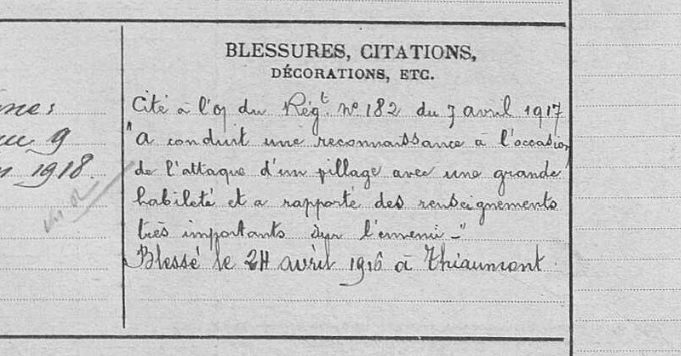 BLESSURES, CITATIONS,
DÉCORATIONS, ETC.
Cité à l'oj du Régt. No 182 du 7 avril 1917
"a conduit une reconnaissance à l'occasion
de l'attaque d'un pillage avec une grande
habileté et a rapporté des renseignements
très importants sur l'ennemi-"
Blessé le 24 avril 1916 à Thiaumont
9
1918.